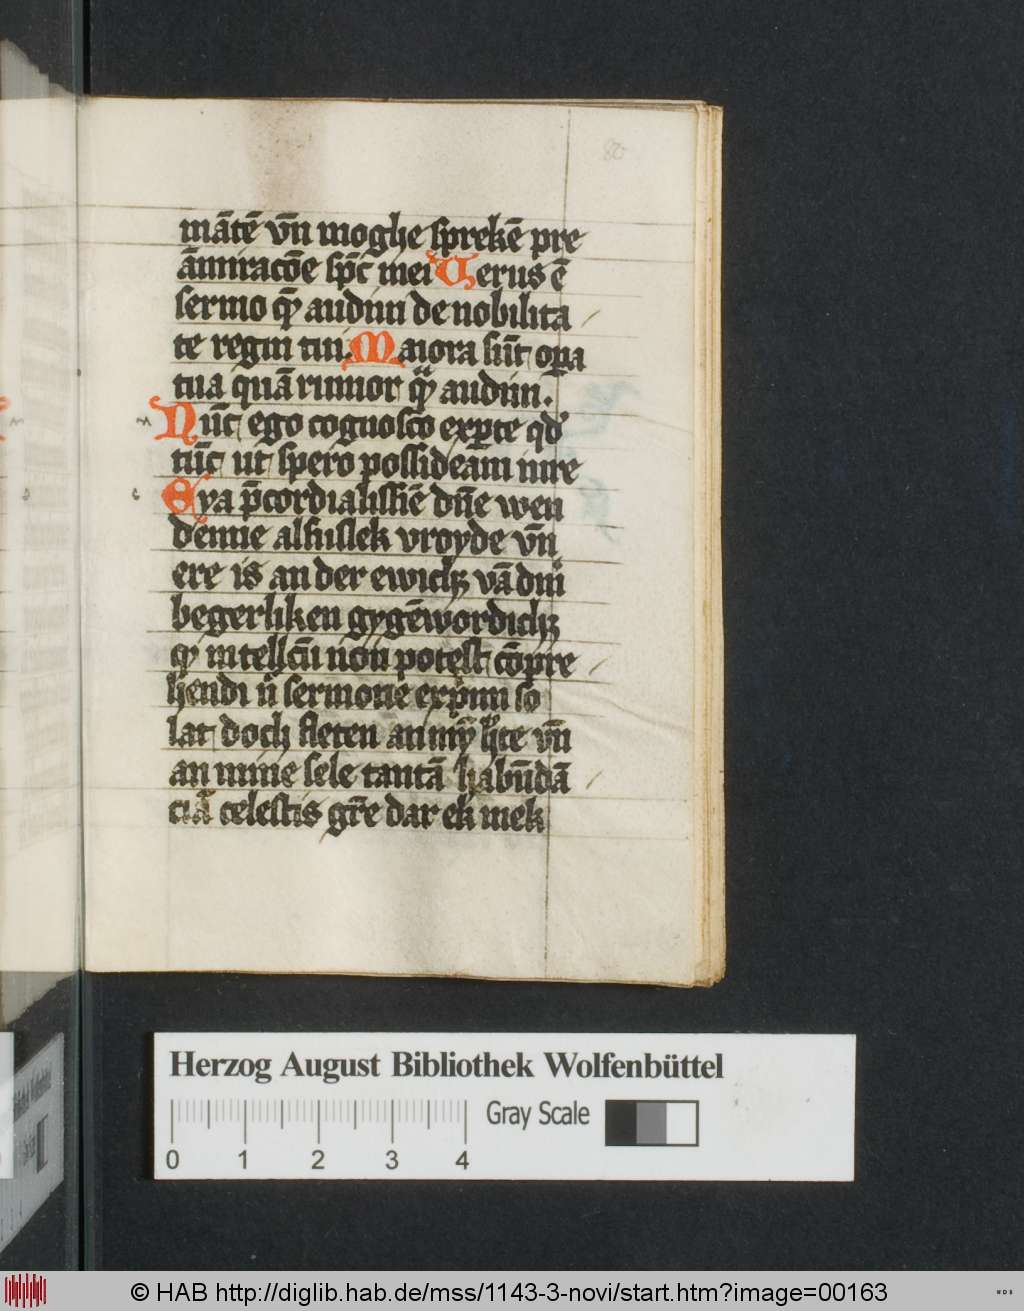 80
mātē vn̄ moghe sprekē pre
āmiracōe spc̄ mei Verus ē
sermo quē audiui de nobilita
te regni tui. Maiora sūt opa
tua quā rumor quē audiui.
Nūc ego cognosco experte qd
tūc ut spero possideam iure
Eya p̄cordialissīe dn̄e wen
denne alsuslek vroyde vn̄
ere is an der ewichꝫ vā dinī
begerliken gygēwordichꝫ
qͥ intellc̄ū non potest cōpre
hendi n̄ sermone exp̄mi so
lat doch fleten an mȳ h̄te vn̄
an mine sele tantā habūdā
ciā celestis gr̄e dar ek mek
Herzog August Bibliothek Wolfenbüttel
Gray Scale
0 1 2 3 4
© HAB http://diglib.hab.de/mss/1143-3-novi/start.htm?image=00163